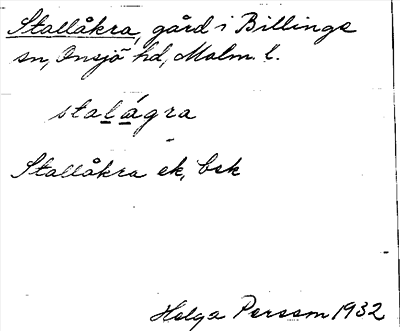 Stallåkra, gård i Billinge
sn, Onsjö hd, Malm. l.
stalágra
Stallåkra ek, bsk
Helga Persson 1932